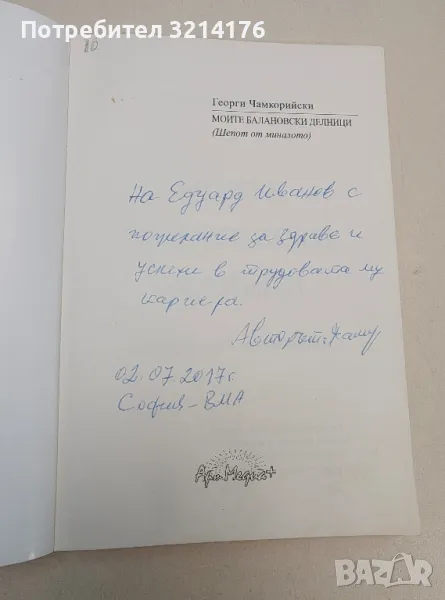 Потребител 3214176
10
Георги Чамкорийски
МОИТЕ БАЛАНОВСКИ ДЕЛНИЦИ
(Шепот от миналото)
На Едуард Иванов с
пожелание за здраве и
успехи в трудовата му
кариера.
Авторът:
02.07.2017 г.
София - ВМА
Арт Медиа+
BAZAR